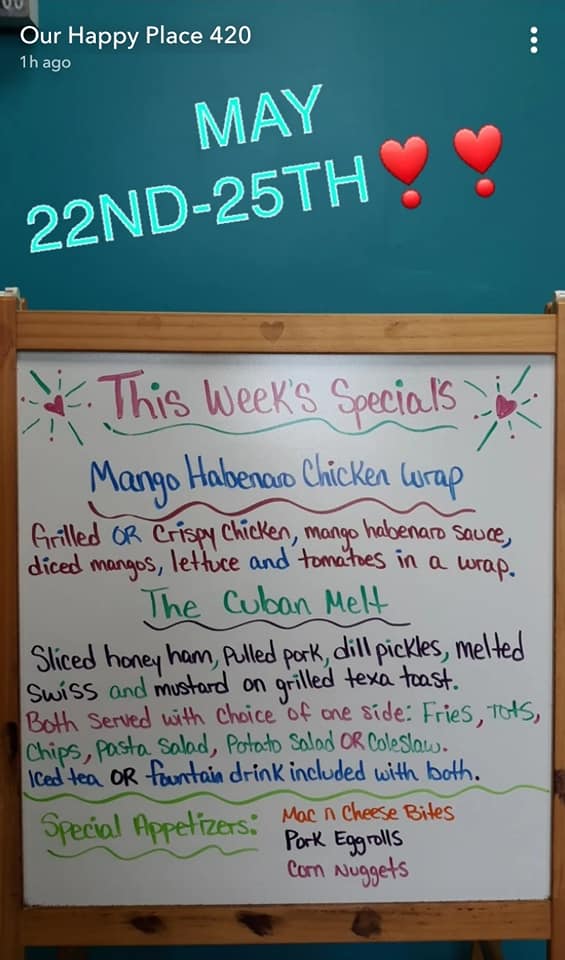 Our Happy Place 420
1h ago
MAY
22ND-25TH
This Week's Specials
Mango Habenaro Chicken Wrap
Grilled OR Crispy Chicken, mango habenaro sauce,
diced mangos, lettuce and tomatoes in a wrap.
The Cuban Melt
Sliced honey ham, Pulled pork, dill pickles, melted
Swiss and mustard on grilled texa toast.
Both Served with Choice of one side: Fries, Tots,
Chips, Pasta Salad, Potato Salad OR Coleslaw.
Iced tea OR fountain drink included with both.
Special Appetizers:
Mac n Cheese Bites
Pork Eggrolls
Corn Nuggets